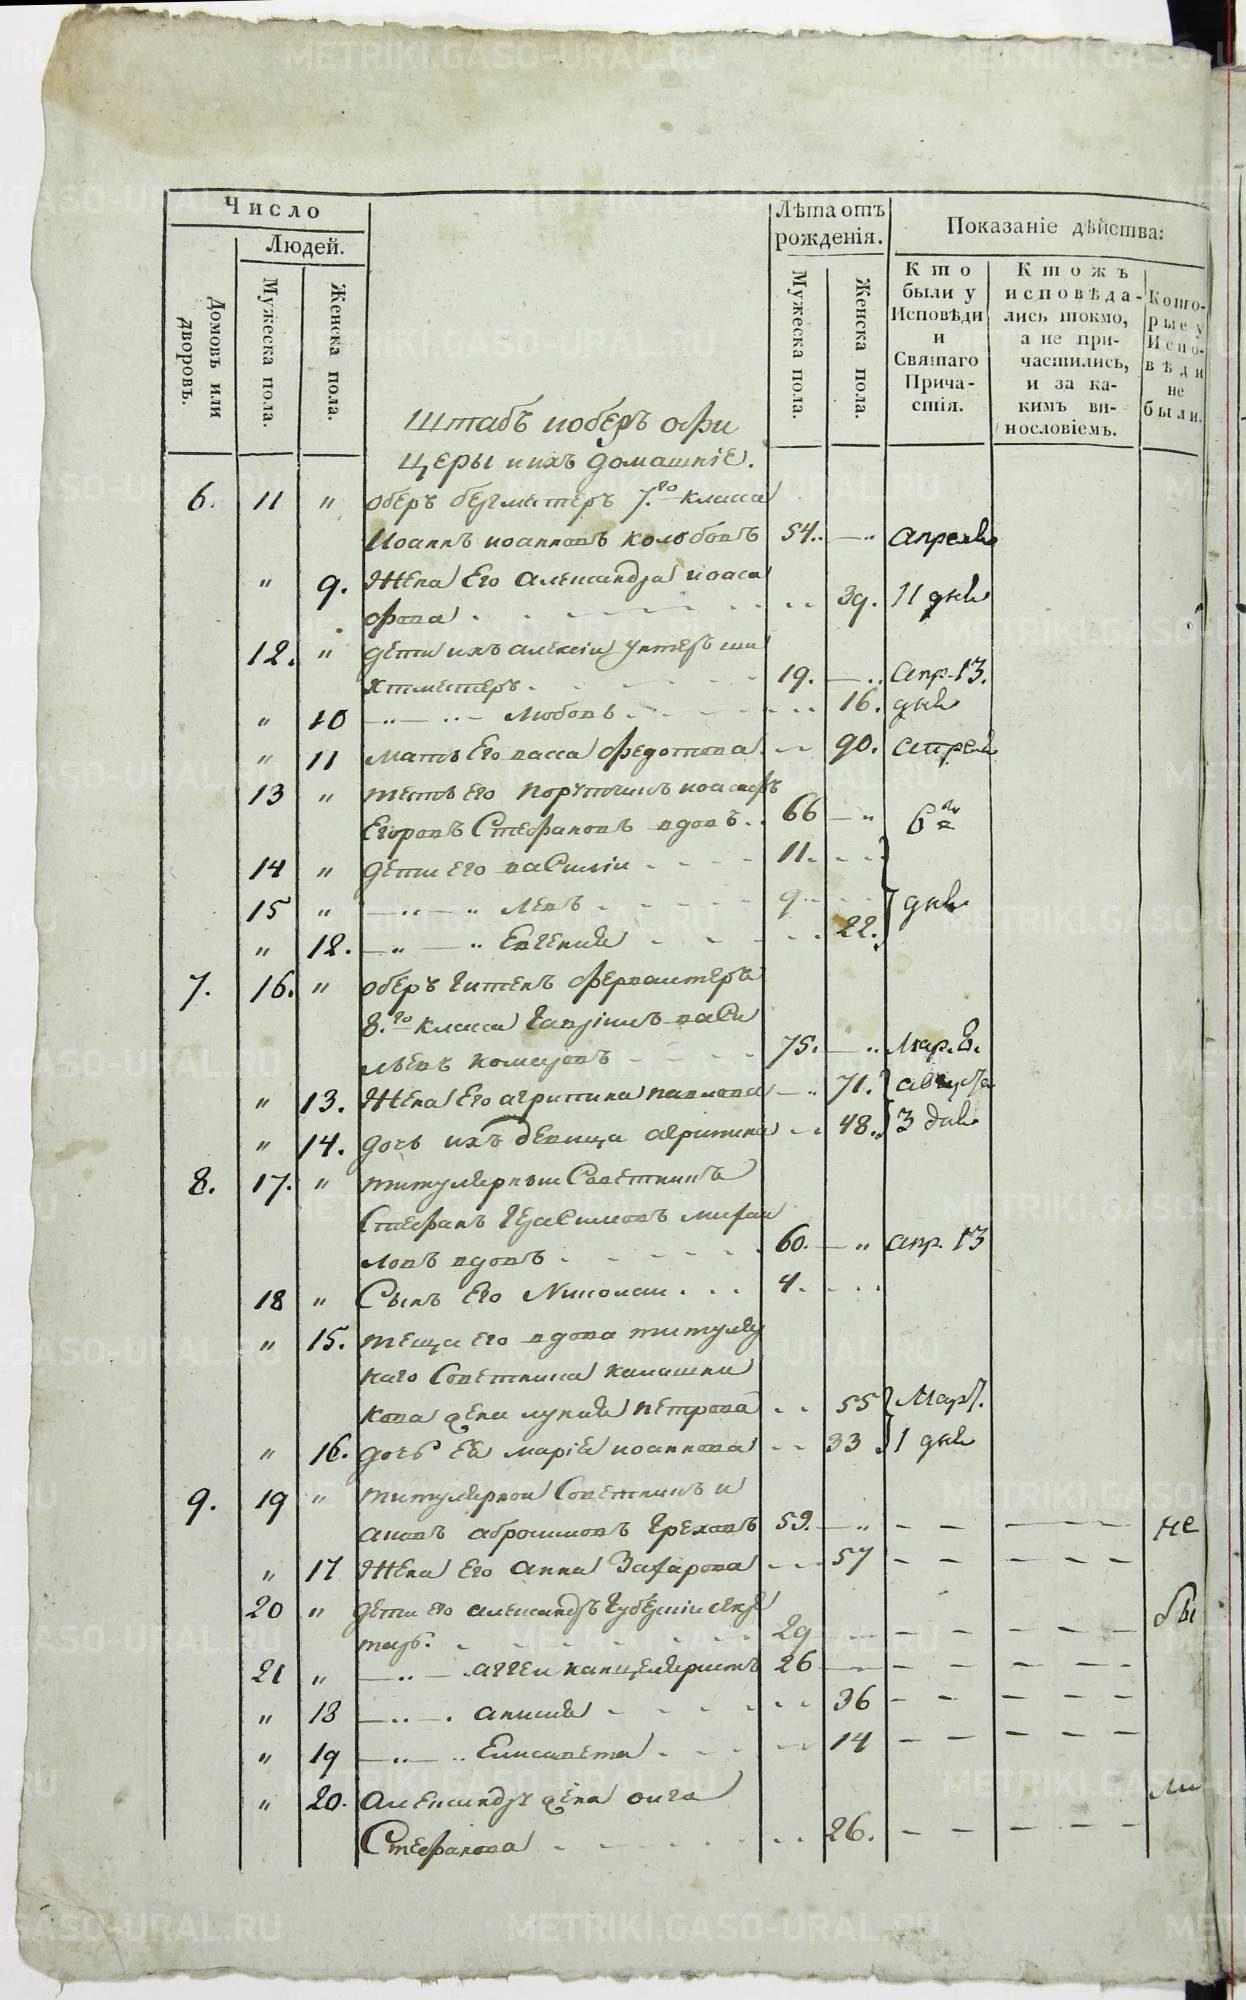 Число
Людей.
Домовъ или дворовъ.
Мужеска пола.
Женска пола.
Лѣта отъ рожденія.
Мужеска пола.
Женска пола.
Показаніе дѣйства:
Кто были у Исповѣди и Святаго Причастія.
Ктожъ исповѣдались токмо, а не причастились, и за какимъ винословіемъ.
Которые у Исповѣди не были.
Штабъ иоберъ офи
церы иихъ домашніе.
6. 11 " оберъ бергмейстеръ 7.го класса
Иоаннъ иоанновъ колобовъ 54. — " апреля
" 9. Жена Его александра иоаса
фова 39. 11 дня
12. " дети ихъ алексіи унтеръ ши
хтмейстеръ 19. — апр. 13.
" 10 — " — любовь 16. дня
" 11 мать Его васса федотова 90. апреля
13 " тесть его порутчикъ иоасафъ
Егоровъ Стефановъ вдовъ 66 — " 6го
14 " дети его василіи 11.
15 " — " — " левъ 9 дня
" 12. — " — " Евгения 22.
7. 16. " оберъ гитенъ фервалтеръ
8.го класса гавріилъ васи
льевъ комаровъ 75. — " Мар. 8.
" 13. Жена Его агрипина павлова — " 71. августа
" 14. дочь ихъ девица агрипина 48. 3 дня
8. 17. " титулярныи Советникъ
Стефанъ герасимовъ михаи
ловъ вдовъ 60. — " апр. 13
18 " Сынъ Его Николаи 4.
" 15. теща его вдова титуляр
наго Советника калашни
кова жена лукия петрова 55 Март.
" 16. дочь Ея маріа иоаннова 33 1 дня
9. 19 " титулярнои Советникъ и
аковъ абросимовъ греховъ 59. — " не
" 17 Жена Его анна Захарова 57
20 " дети его александръ губернскіи секре
тарь. 29 бы
21 " — " — аггеи канцеляристъ 26
" 18 — " — анисия 36
" 19 — " — " Елисавета 14
" 20. александра жена олга ли
Стефанова 26.
METRIKI.GASO-URAL.RU